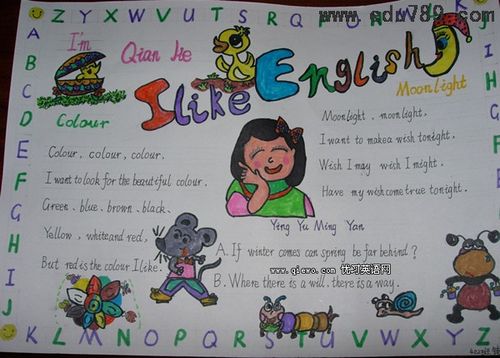 Z Y X W V U T S R Q
I'm
Qian Jie
I like English
Moonlight
Colour
Colour, colour, colour.
I want to look for the beautiful colour.
Green, blue, brown, black.
Yellow, white and red,
But red is the colour I like.
Moonlight, moonlight,
I want to make a wish tonight.
Wish I may wish I might.
Have my wish come true tonight.
Ying Yu Ming Yan
A. If winter comes can spring be far behind?
B. Where there is a will, there is a way.
A
B
C
D
E
F
G
H
I
J
K L M N O P Q R S T U V W X Y Z